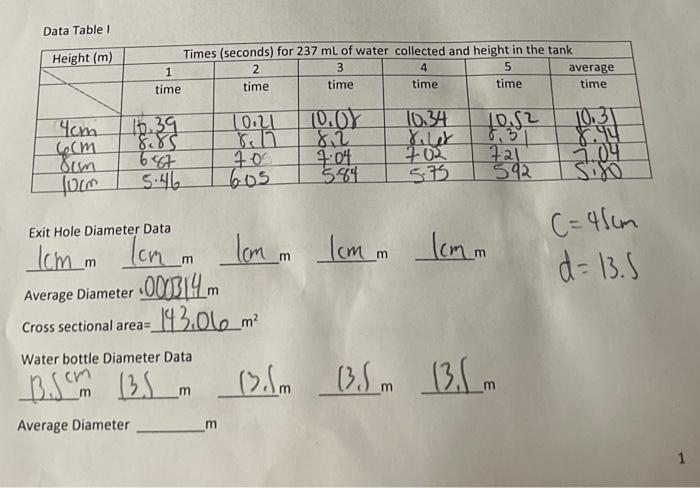 Data Table I
Height (m) Times (seconds) for 237 mL of water collected and height in the tank
1 2 3 4 5 average
time time time time time time
4cm 10.39 10.21 10.08 10.34 10.52 10.31
6cm 8.85 8.17 8.2 8.31 8.44
8cm 6.87 7.0 7.04 7.02 7.21 7.04
10cm 5.46 6.05 5.84 5.75 5.92 5.80
Exit Hole Diameter Data
1cm m 1cm m 1cm m 1cm m 1cm m
C=45cm
d=13.5
Average Diameter .000314 m
Cross sectional area= 143.06 m²
Water bottle Diameter Data
13.5 cm m 13.5 m 13.5 m 13.5 m 13.5 m
Average Diameter ________ m
1